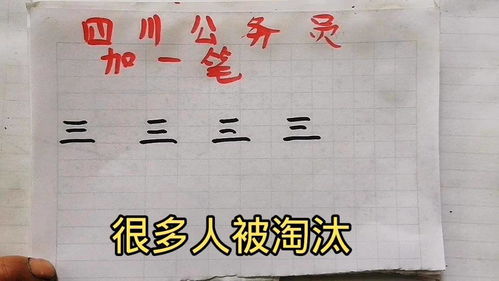 四川公务员
加一笔
三 三 三 三
很多人被淘汰